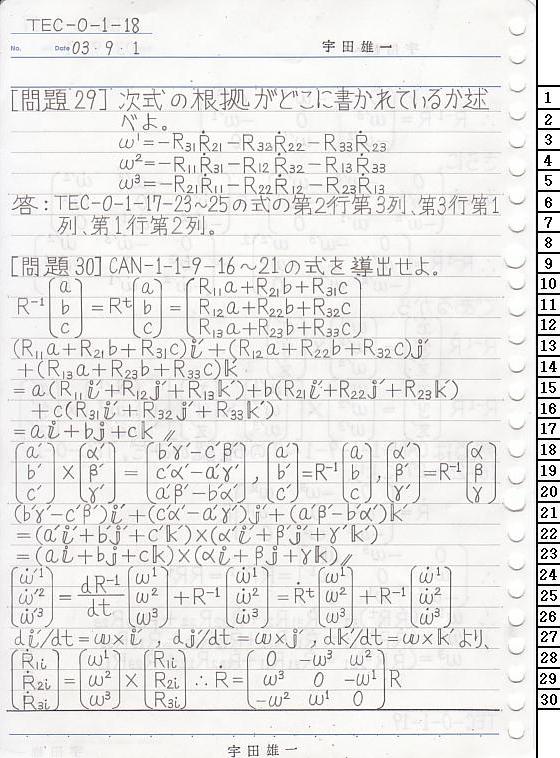 TEC-0-1-18
No. Date 03・9・1 宇田雄一
[問題29] 次式の根拠がどこに書かれているか述
べよ。
ω¹=-R₃₁Ṙ₂₁-R₃₂Ṙ₂₂-R₃₃Ṙ₂₃
ω²=-R₁₁Ṙ₃₁-R₁₂Ṙ₃₂-R₁₃Ṙ₃₃
ω³=-R₂₁Ṙ₁₁-R₂₂Ṙ₁₂-R₂₃Ṙ₁₃
答:TEC-0-1-17-23~25の式の第2行第3列、第3行第1
列、第1行第2列。
[問題30] CAN-1-1-9-16~21の式を導出せよ。
R⁻¹(a b c) = Rᵗ(a b c) = (R₁₁a+R₂₁b+R₃₁c R₁₂a+R₂₂b+R₃₂c R₁₃a+R₂₃b+R₃₃c)
(R₁₁a+R₂₁b+R₃₁c)i′+(R₁₂a+R₂₂b+R₃₂c)j′
+(R₁₃a+R₂₃b+R₃₃c)k′
=a(R₁₁i′+R₁₂j′+R₁₃k′)+b(R₂₁i′+R₂₂j′+R₂₃k′)
+c(R₃₁i′+R₃₂j′+R₃₃k′)
=ai+bj+ck〃
(a′ b′ c′)×(α′ β′ γ′) = (b′γ′-c′β′ c′α′-a′γ′ a′β′-b′α′), (a′ b′ c′)=R⁻¹(a b c), (α′ β′ γ′)=R⁻¹(α β γ)
(b′γ′-c′β′)i′+(c′α′-a′γ′)j′+(a′β′-b′α′)k′
=(a′i′+b′j′+c′k′)×(α′i′+β′j′+γ′k′)
=(ai+bj+ck)×(αi+βj+γk)〃
(ω̇′¹ ω̇′² ω̇′³) = dR⁻¹/dt (ω¹ ω² ω³) + R⁻¹(ω̇¹ ω̇² ω̇³) = Ṙᵗ(ω¹ ω² ω³) + R⁻¹(ω̇¹ ω̇² ω̇³)
di′/dt=ω×i′, dj′/dt=ω×j′, dk′/dt=ω×k′より、
(Ṙ₁ᵢ Ṙ₂ᵢ Ṙ₃ᵢ) = (ω¹ ω² ω³)×(R₁ᵢ R₂ᵢ R₃ᵢ) ∴Ṙ=(0 -ω³ ω² ω³ 0 -ω¹ -ω² ω¹ 0)R
宇田雄一
1
2
3
4
5
6
7
8
9
10
11
12
13
14
15
16
17
18
19
20
21
22
23
24
25
26
27
28
29
30